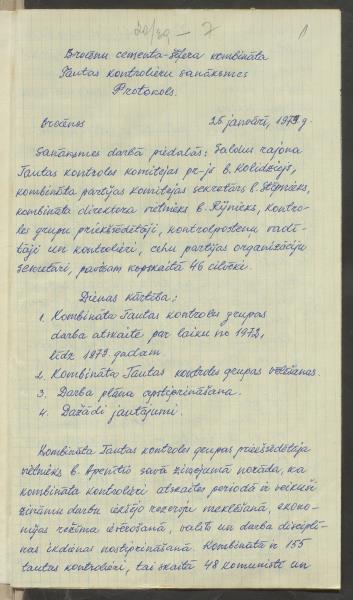 20/39 - 7
1
Brocēnu cementa-šīfera kombināta
Tautas kontrolieru sanāksmes
Protokols.
Brocēnos 25. janvārī, 1973 g.
Sanāksmes darbā piedalās: Saldus rajona
Tautas kontroles komitejas pr-js b. Kolidzejs,
kombināta partijas komitejas sekretārs b. Stepnieks,
kombināta direktora vietnieks b. Rijnieks, kontro-
les grupu priekšsēdētāji, kontrolposteņu vadī-
tāji un kontrolieri, cehu partijas organizāciju
sekretāri, pavisam kopskaitā 46 cilvēki.
Dienas kārtība:
1. Kombināta Tautas kontroles grupas
darba atskaite par laiku no 1972,
līdz 1973. gadam.
2. Kombināta Tautas kontroles grupas vēlēšanas.
3. Darba plāna apstiprināšana.
4. Dažādi jautājumi.
Kombināta Tautas kontroles grupas priekšsēdētāja
vietnieks b. savā ziņojumā norāda, ka
kombināta kontrolieri atskaites periodā ir veikuši
zināmu darbu iekšējo rezervju meklēšanā, ekono-
mijas režīma ievērošanā, valsts un darba disciplī-
nas ikdienas nostiprināšanā. Kombinātā ir 155
tautas kontrolieri, tai skaitā 48 komunisti un